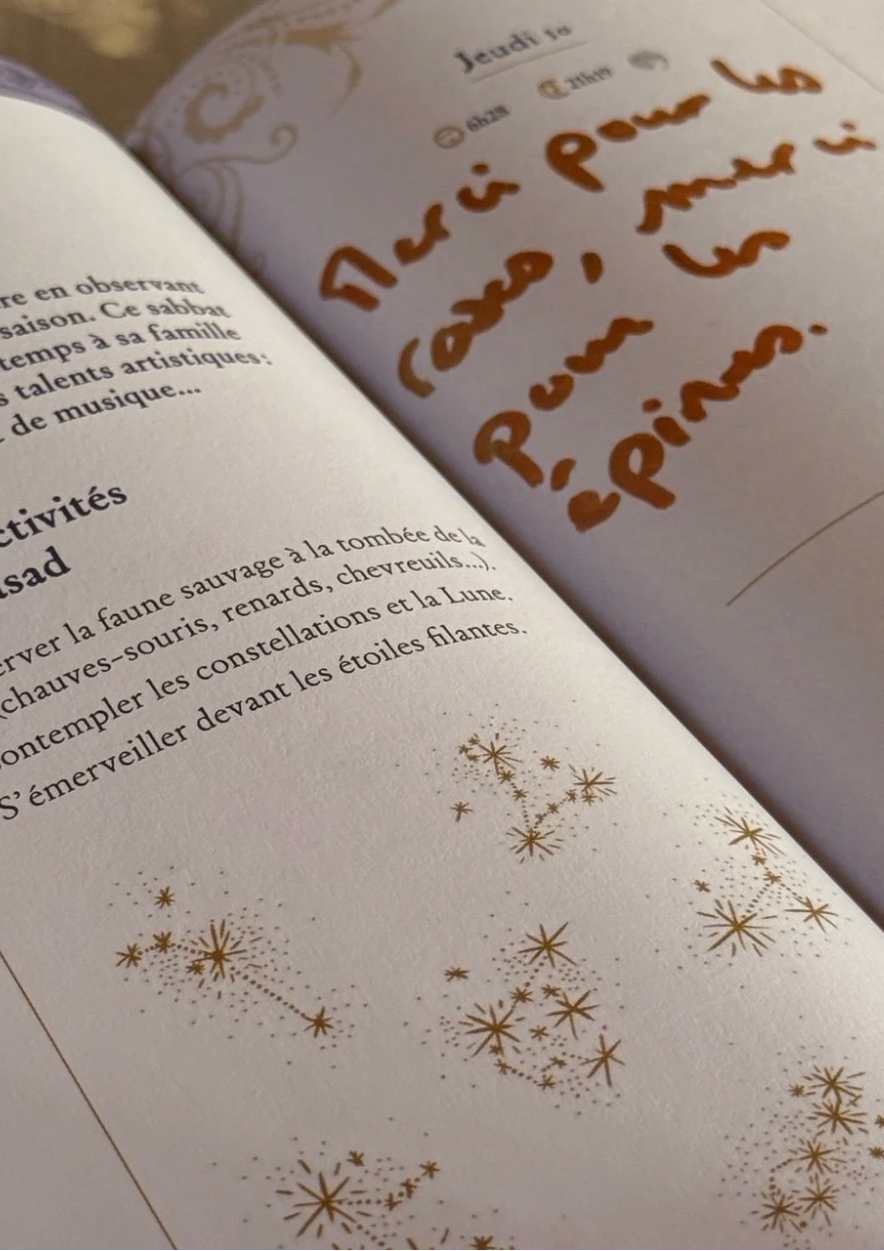 re en observant
saison. Ce sabbat
temps à sa famille
s talents artistiques :
de musique...
ctivités
sad
erver la faune sauvage à la tombée de la
(chauves-souris, renards, chevreuils...).
ontempler les constellations et la Lune.
S'émerveiller devant les étoiles filantes.
Jeudi
6h28
21h19
Merci pour les
roses, merci
pour les
épines.